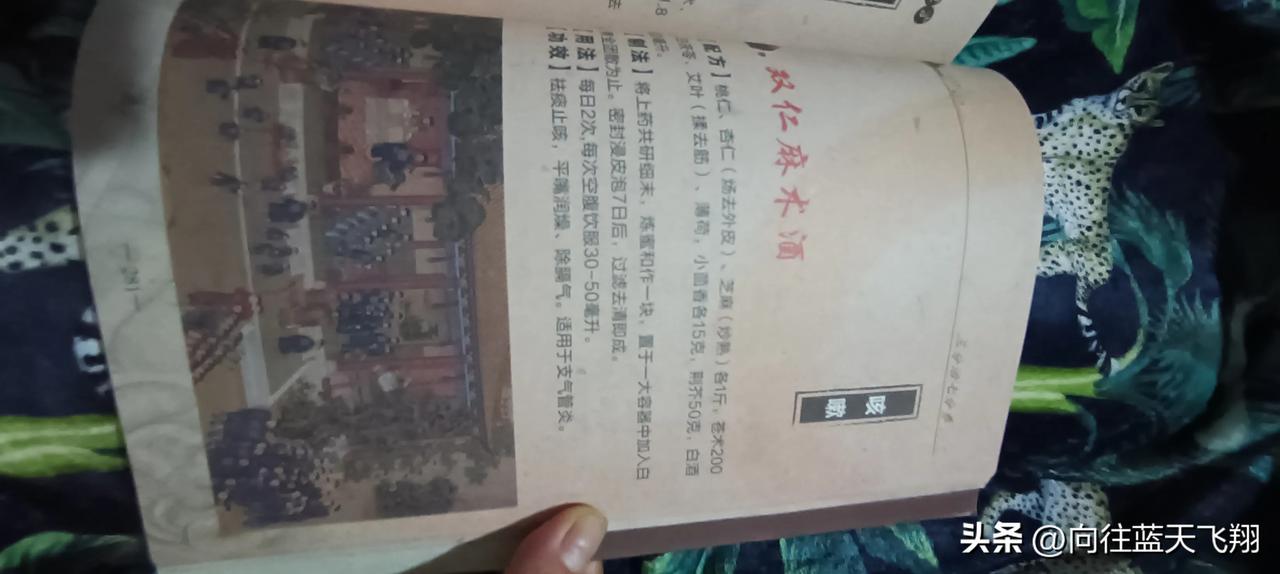 咳嗽
双仁麻术酒
【配方】桃仁、杏仁（炀去外皮）、芝麻（炒熟）各1斤，苍术200
艾叶（揉去筋）、薄荷，小茴香各15克，荆芥50克，白酒
【制法】将上药共研细末，炼蜜和作一块，置于一大容器中加入白
为止。密封浸皮泡7日后，过滤去清即成。
【用法】每日2次，每次空腹饮服30-50毫升。
【功效】祛痰止咳，平嘴润燥、除膈气。适用于支气管炎。
281
头条 @向往蓝天飞翔